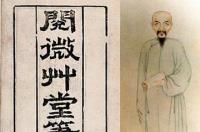 閱微艸堂筆